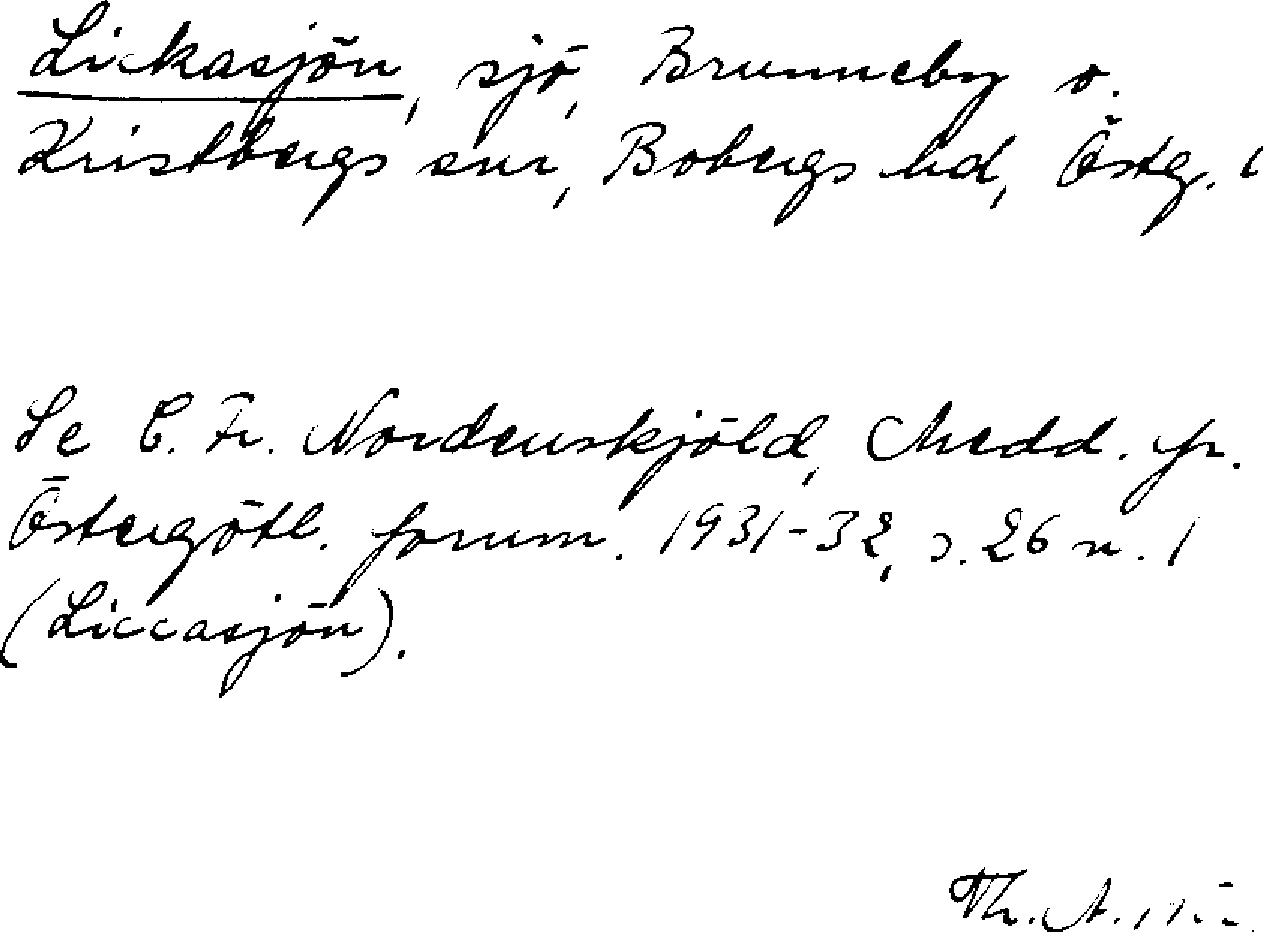 Lickasjön, sjö, Brunneby o.
Kristbergs snr, Bobergs hd, Östg. l
Se C. Fr. Nordenskjöld, Medd. fr.
Östergötl. fornm. 1931-32, s. 26 n. 1
(Liccasjön).
Th. A.